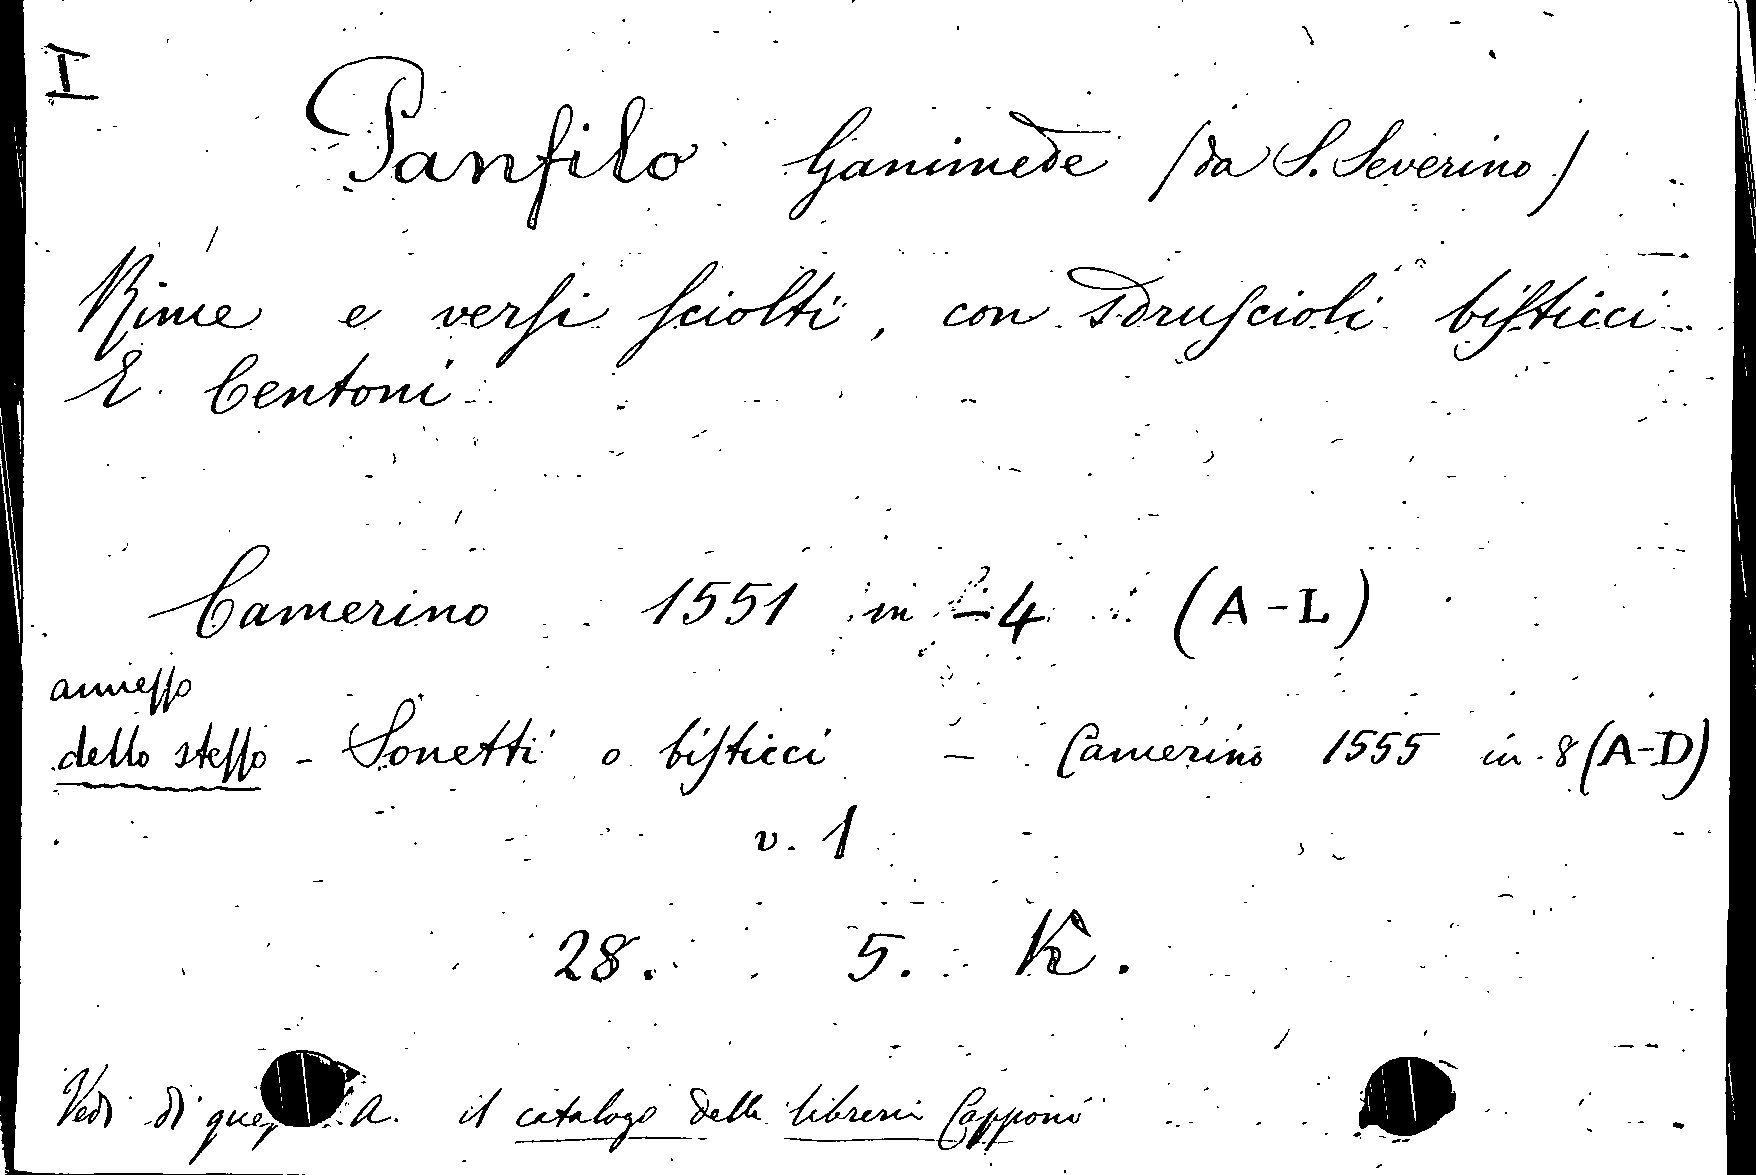 I
Panfilo Ganimede (da S. Severino)
Rime e versi sciolti, con sdruscioli bisticci
E Centoni
Camerino 1551 in -4 (A-L)
annesso
dello stesso - Sonetti o bisticci - Camerino 1555 in 8 (A-D)
v. 1
28. 5. K.
Vedi di A. il catalogo della libreria Capponi